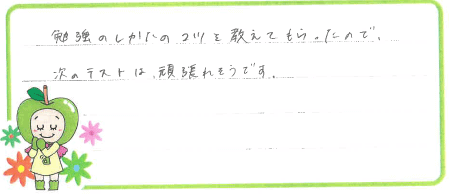 勉強のしかたのコツを教えてもらったので、
次のテストは、頑張れそうです。